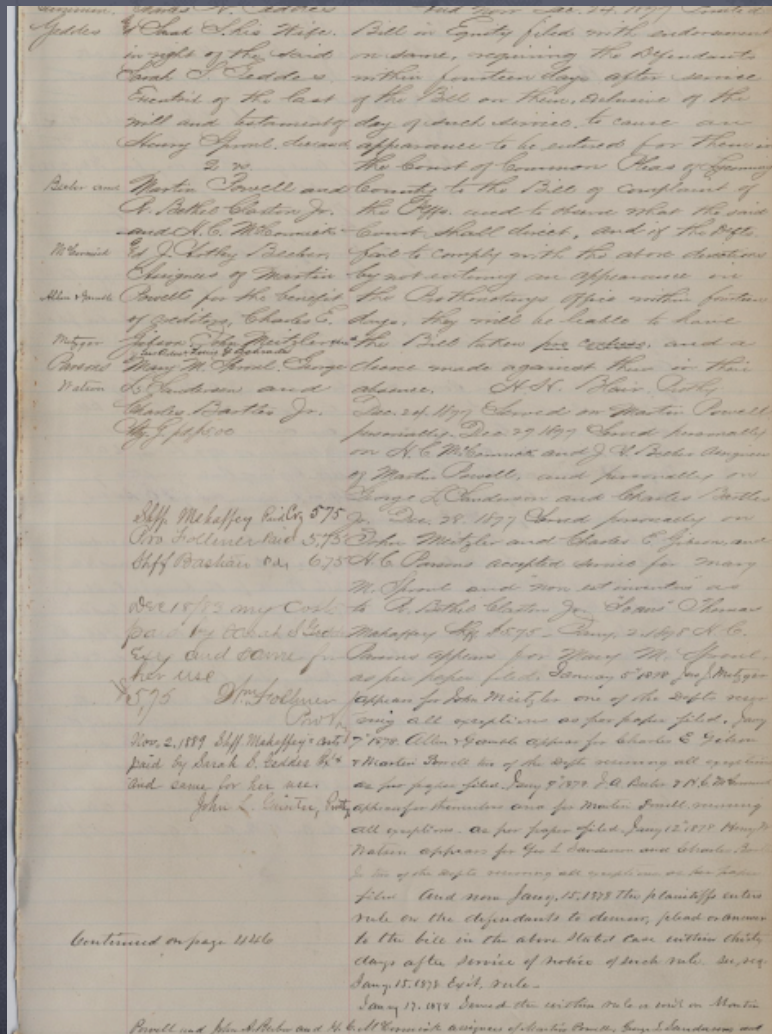 Geddes
& Sarah S. his Wife.
in right of the said
Sarah S. Geddes
Executrix of the last
will and testament of
Henry Sproul, deceased
vs.
Beeber and
Martin Powell and
R. Bethel Claxton, Jr.
and H. C. McCormick
McCormick
& J. Beeber,
Assignees of Martin
Allen & Gamble
Powell for the benefit
of creditors, Charles E.
Metzger
Gibson, John Meitzler
Parsons
Mary M. Sproul, George
Watson
L. Sanderson and
Charles Bartles Jr.
Shff. Mahaffey Pd. 5.75
Pro Follmer Paid 5.75
Shff Bastian 6.75
Dec 18/83 my Costs
paid by Sarah S Geddes
Exr and same for
her use
$5.75 Wm Follmer
Nov. 2. 1889 Shff. Mahaffey's costs
paid by Sarah S. Geddes
and same for her use.
John L. Guinter, Proty
Continued on page 446
And now Dec. 24. 1877
Bill in Equity filed with endorsement
on same, requiring the Defendants
within fourteen days after service
of the Bill on them, exclusive of the
day of such service, to cause an
appearance to be entered for them in
the Court of Common Pleas of Lycoming
County to the Bill of complaint of
the Plffs. and to observe what the said
Court shall direct, and if the Defts.
fail to comply with the above directions
by not entering an appearance in
the Prothonotarys office within fourteen
days, they will be liable to have
the Bill taken pro confesso, and a
decree made against them in their
absence. H. H. Blair Proty
Dec. 24. 1877 Served on Martin Powell
personally. Dec. 27 1877 Served personally
on H. C. McCormick and J. Beeber Assignees
of Martin Powell, and personally on
George L. Sanderson and Charles Bartles
Jr. Dec. 28. 1877 Served personally on
John Meitzler and Charles E. Gibson, and
H. C. Parsons accepted service for Mary
M. Sproul and "non est inventus" as
to R. Bethel Claxton Jr. Thomas
Mahaffey Shff $5.75 - Jany. 2. 1878 H. C.
Parsons appears for Mary M. Sproul
as per paper filed. January 5" 1878 Metzger
appears for John Meitzler one of the Defts
all exceptions as per paper filed. Jany
7" 1878. Allen & Gamble appear for Charles E Gibson
& Martin Powell two of the Defts all exceptions
as per paper filed. Jany 9" 1878 J. A. Beeber & H. C. McCormick
appear for themselves and for Martin Powell,
all exceptions as per paper filed. Jany 12" 1878 Henry W
Watson appears for Geo L Sanderson and Charles
Jr two of the Defts all exceptions as per paper
filed And now Jany. 15. 1878 the plaintiffs enters
rule on the defendants to demur, plead or answer
to the bill in the above stated case within thirty
days after service of notice of such rule.
Jany 15. 1878 Exit. rule.
Jany 17. 1878 Served the within rule on Martin
Powell and John A Beeber and H C McCormick assignees of Martin Powell, George L Sanderson, and